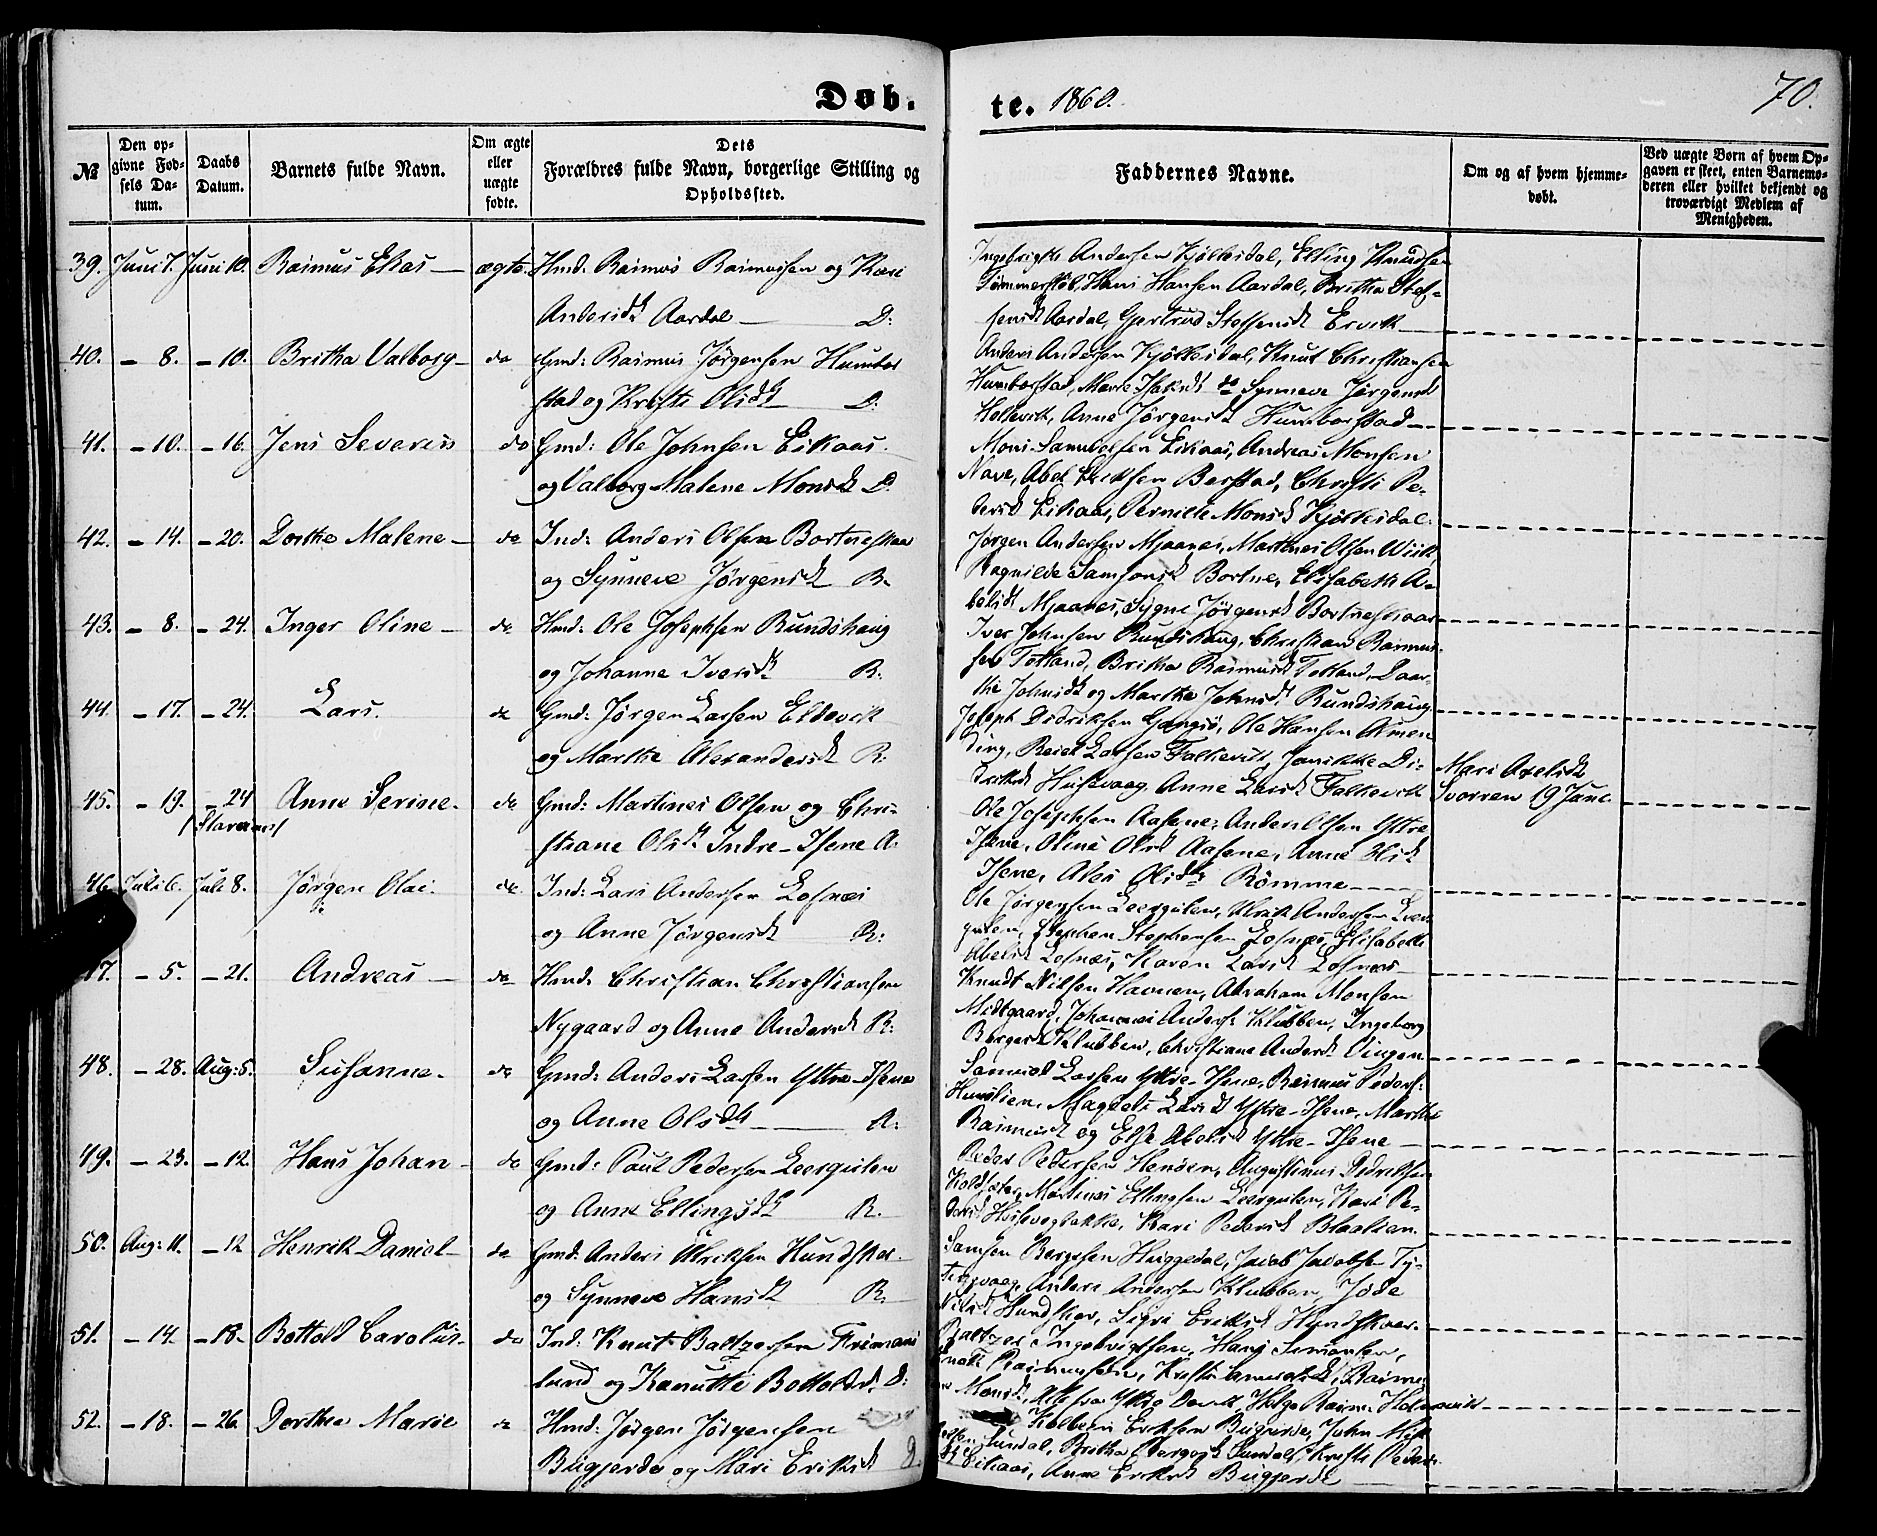 Døb.
te. 1860.
70.
№
Den opgivne Fødsels Datum.
Daabs Datum.
Barnets fulde Navn.
Om ægte eller uægte fødte.
Dets Forældres fulde Navn, borgerlige Stilling og Opholdssted.
Faddernes Navne.
Om og af hvem hjemmedøbt.
Ved uægte Børn af hvem Opgaven er skeet, enten Barnemoderen eller hvilket bekjendt og troværdigt Medlem af Menigheden.
39. Juni 7. Juni 10. Rasmus Elias — ægte. Hmd: Rasmus Rasmussen og Kari
Andersdt Aardal — D:
Ingebrigth Andersen Kjøllesdal, Elling Knudsen
Tømmerstøl, Hans Hansen Aardal, Britha Stef-
fensdt Aardal, Gjertrud Steffensdt Ervik
40. – 8. – 10. Britha Valborg – do Gmd: Rasmus Jørgensen Humbor
stad og Kristi Olsdt D:
Anders Andersen Kjøllesdal, Knut Christiansen
Humborstad, Marie Isaksdt do Synneve Jørgensdt
Hollevik, Anne Jørgensdt Humborstad
41. – 10. – 16. Jens Severin do Gmd: Ole Johnsen Eikaas
og Valborg Malene Monsdt D.
Mons Samuelsen Eikaas, Andreas Monsen
Nave, Abel Eriksen Berstad, Christi Pe-
dersdt Eikaas, Pernille Monsdt Kjøllesdal.
42. – 14. – 20. Dorthe Malene – do Ind: Anders Olsen Bortneskar
og Synneve Jørgensdt B.
Jørgen Andersen Mjaanes, Martinus Olsen Wiik,
Ragnilde Samsonsdt Bortne, Elisabeth A-
belsdt Mjaanes, Sygne Jørgensdt Bortneskaar
43. – 8. – 24. Inger Oline – do. Hmd: Ole Josephsen Rundshaug
og Johanne Iversdt B.
Iver Johnsen Rundshaug, Christian Rasmus-
sen Totland, Britha Rasmusdt Totland, Daar-
the Johnsdt og Marthe Johnsdt Rundshaug
44. – 17. – 24. Lars. do Gmd: Jørgen Larsen Eldevik
og Marthe Alexandersdt B.
Joseph Didriksen Gangsø, Ole Hansen Almen
ding, Larsen Falkevik, Jonikke Di-
driksdt Husevaag, Anne Larsdt Falkevik
Mari Axelsdt
Svorren 19 Juni
45. – 19. – 24 Anne Serine. do Gmd: Martines Olsen og Chri-
stiane Olsdt Indre-Isene A.
Ole Josephsen Aasene, Anders Olsen Yttre
Isene, Oline Olsdt Aasene, Anne Olsdt
Isene, Olsdt Rømme
46. Juli 6. Juli 8. Jørgen Olai. do. Ind: Lars Andersen Lofnæs
og Anne Jørgensdt B:
Ole Jørgensen Leergulen, Ulrik Andersen Leer-
gulen, Stephen Stephensen Lofnæs, Elisabeth
Abelsdt Lofnæs, Karen Larsdt Lofnæs
47. – 5. – 21. Andreas – do Hmd: Christian Christiansen
Nygaard og Anne Andersdt B:
Knudt Nilsen Havnen, Abraham Monsen
Midtgaard, Johannes Anders: Klubben, Ingeborg
Bergesdt Klubben, Christiane Andersdt Vingen
48. – 28. Aug: 5. Susanne. do Gmd: Anders Larsen Yttre-Isene
og Anne Olsdt A:
Samuel Larsen Yttre-Isene, Rasmus Peders:
Larsdt Yttre-Isene, Marthe
Rasmusdt og Else Abelsdt Yttre-Isene
49. – 23. – 12. Hans Johan – do Gmd: Paul Pedersen Leergulen
og Anne Ellingsdt B.
Peder Pedersen Henøen, Augustinus Didriksen
Koldsæter, Martines Ellingsen Leergulen, Kari Pe-
dersdt Husevogbakke, Kari Pedersdt Blaalien
50. Aug: 11. – 12 Henrik Daniel – do Gmd: Anders Ulriksen Hundskar
og Synneve Hansdt B.
Samson Bergesen Huggedal, Jacob Jacobsen Ty-
tingvaag, Anders Andersen Klubben, Jøde
Nilsdt Hundskar, Sigri Eriksdt Hundskaar.
51. – 14. – 18. Bottold Carolus. do Ind: Knut Baltzersen Frimans
lund og Kanutte Bottolsd. D:
Baltzer Ingebrigtsen, Hans Simonsen,
Rasmussen, Rasmus
52. – 18. – 26. Dorthea Marie do Hmd: Jørgen Jørgensen
Bugjerde og Mari Eriksdt D.
Kolbein Eriksen Bugjerde, John Mik
kelsen Sundal, Britha Bergesdt Sundal, Kristi Peders
dt Eikaas, Anne Eriksdt Bugjerde